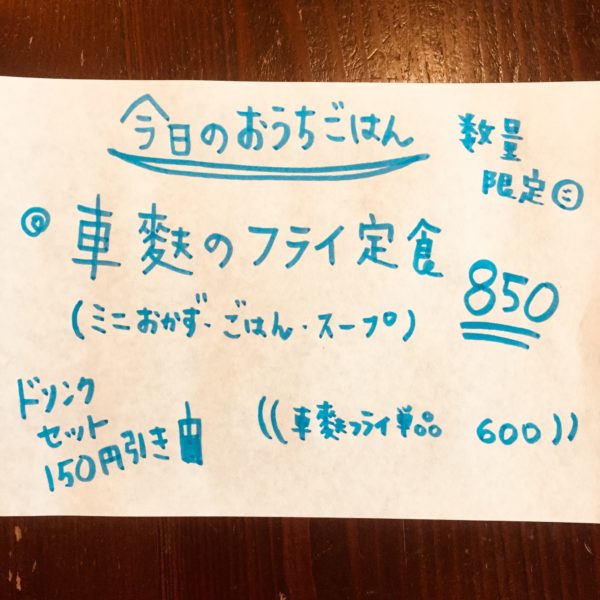 今日のおうちごはん
数量
限定
車麩のフライ定食
850
(ミニおかず・ごはん・スープ)
ドリンク
セット
150円引き
((車麩フライ単品 600))